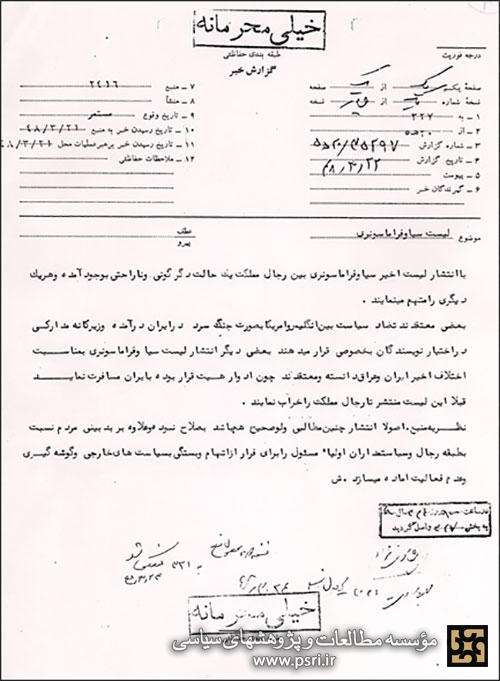 خیلی محرمانه
طبقه بندی حفاظتی
گزارش خبر
درجه فوریت
صفحه یک از یک صفحه
نسخه شماره یک از نسخه
۱ - به ۳۲۷
۲ - از ۲۰ ه ۵
۳ - شماره گزارش
۴ - تاریخ گزارش
۵ - پیوست
۶ - گیرندگان خبر
۷ - منبع ۲۴۱۶
۸ - منشأ
۹ - تاریخ وقوع مستمر
۱۰ - تاریخ رسیدن خبر به منبع ۴۸/۳/۲۱
۱۱ - تاریخ رسیدن خبر برهبر عملیات محل ۴۸/۳/۲۱
۱۲ - ملاحظات حفاظتی
موضوع لیست سیا وفراماسونری
عطف
پیرو
با انتشار لیست اخیر سیا وفراماسونری بین رجال مملکت یک حالت دگرگونی وناراحتی بوجود آمده وهریک
دیگری رامتهم مینمایند
بعضی معتقدند تضاد سیاست بین انگلیس وامریکا بصورت جنگ سرد در ایران درآمده وزیرکانه مدارکی
در اختیار نویسندگان بخصوصی قرار میدهند بعضی دیگر انتشار لیست سیا وفراماسونری بمناسبت
اختلاف اخیر ایران وعراق دانسته ومعتقدند چون ادوارد هیت قرار بوده بایران مسافرت نماید
قبلا این لیست منتشر تا رجال مملکت راخراب نمایند .
نظریه منبع . اصولا انتشار چنین مطالبی ولو صحیح هم باشد بصلاح نبود وعلاوه بر بدبینی مردم نسبت
بطبقه رجال وسیاستمداران اولیاء مسئول رابرای فرار از اتهام وبستگی بسیاست های خارجی وگوشه گیری
وعدم فعالیت اماده میسازد . ش
خیلی محرمانه
مؤسسه مطالعات و پژوهشهای سیاسی
www.psri.ir